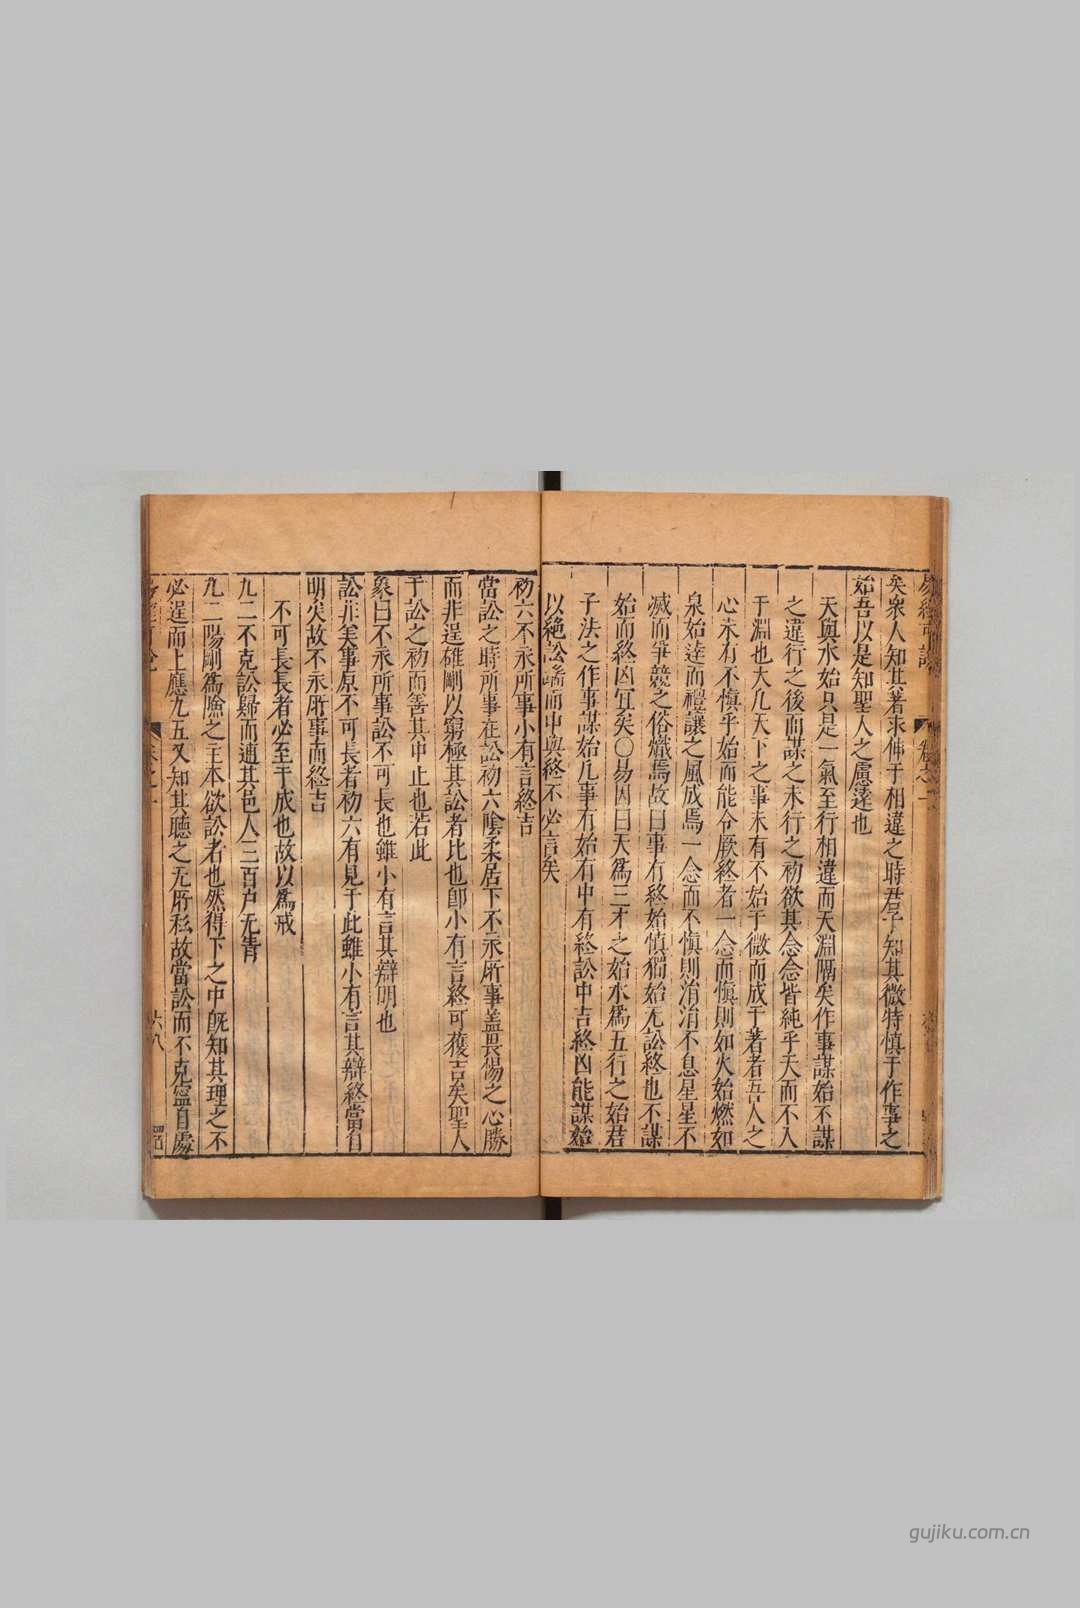 矣衆人知其著求伸于相違之時君子知其微特慎于作事之
始吾以是知聖人之慮遠也
天與水始只是一氣至行相違而天淵隔矣作事謀始不謀
之違行之後而謀之未行之初欲其念念皆純乎天而不入
于淵也大凡天下之事未有不始于微而成于著者吾人之
心未有不慎乎始而能令厥終者一念而慎則如火始燃如
泉始達而禮讓之風成焉一念而不慎則涓涓不息星星不
滅而爭競之俗熾焉故曰事有終始慎獨始无訟終也不謀
始而終凶宜矣○易因曰天為三才之始水為五行之始君
子法之作事謀始凡事有始有中有終訟中吉終凶能謀始
以絕訟端而中與終不必言矣
初六不永所事小有言終吉
當訟之時所事在訟初六陰柔居下不永所事蓋畏惕之心勝
而非逞雄剛以窮極其訟者比也即小有言終可獲吉矣聖人
于訟之初而善其中止也若此
象曰不永所事訟不可長也雖小有言其辯明也
訟非美事原不可長者初六有見于此雖小有言其辯終當自
明矣故不永所事而終吉
不可長長者必至于成也故以為戒
九二不克訟歸而逋其邑人三百户无眚
九二陽剛為險之主本欲訟者也然得下之中既知其理之不
必逞而上應九五又知其聽之无所私故當訟而不克寧自處
卷之一
六八
gujiku.com.cn